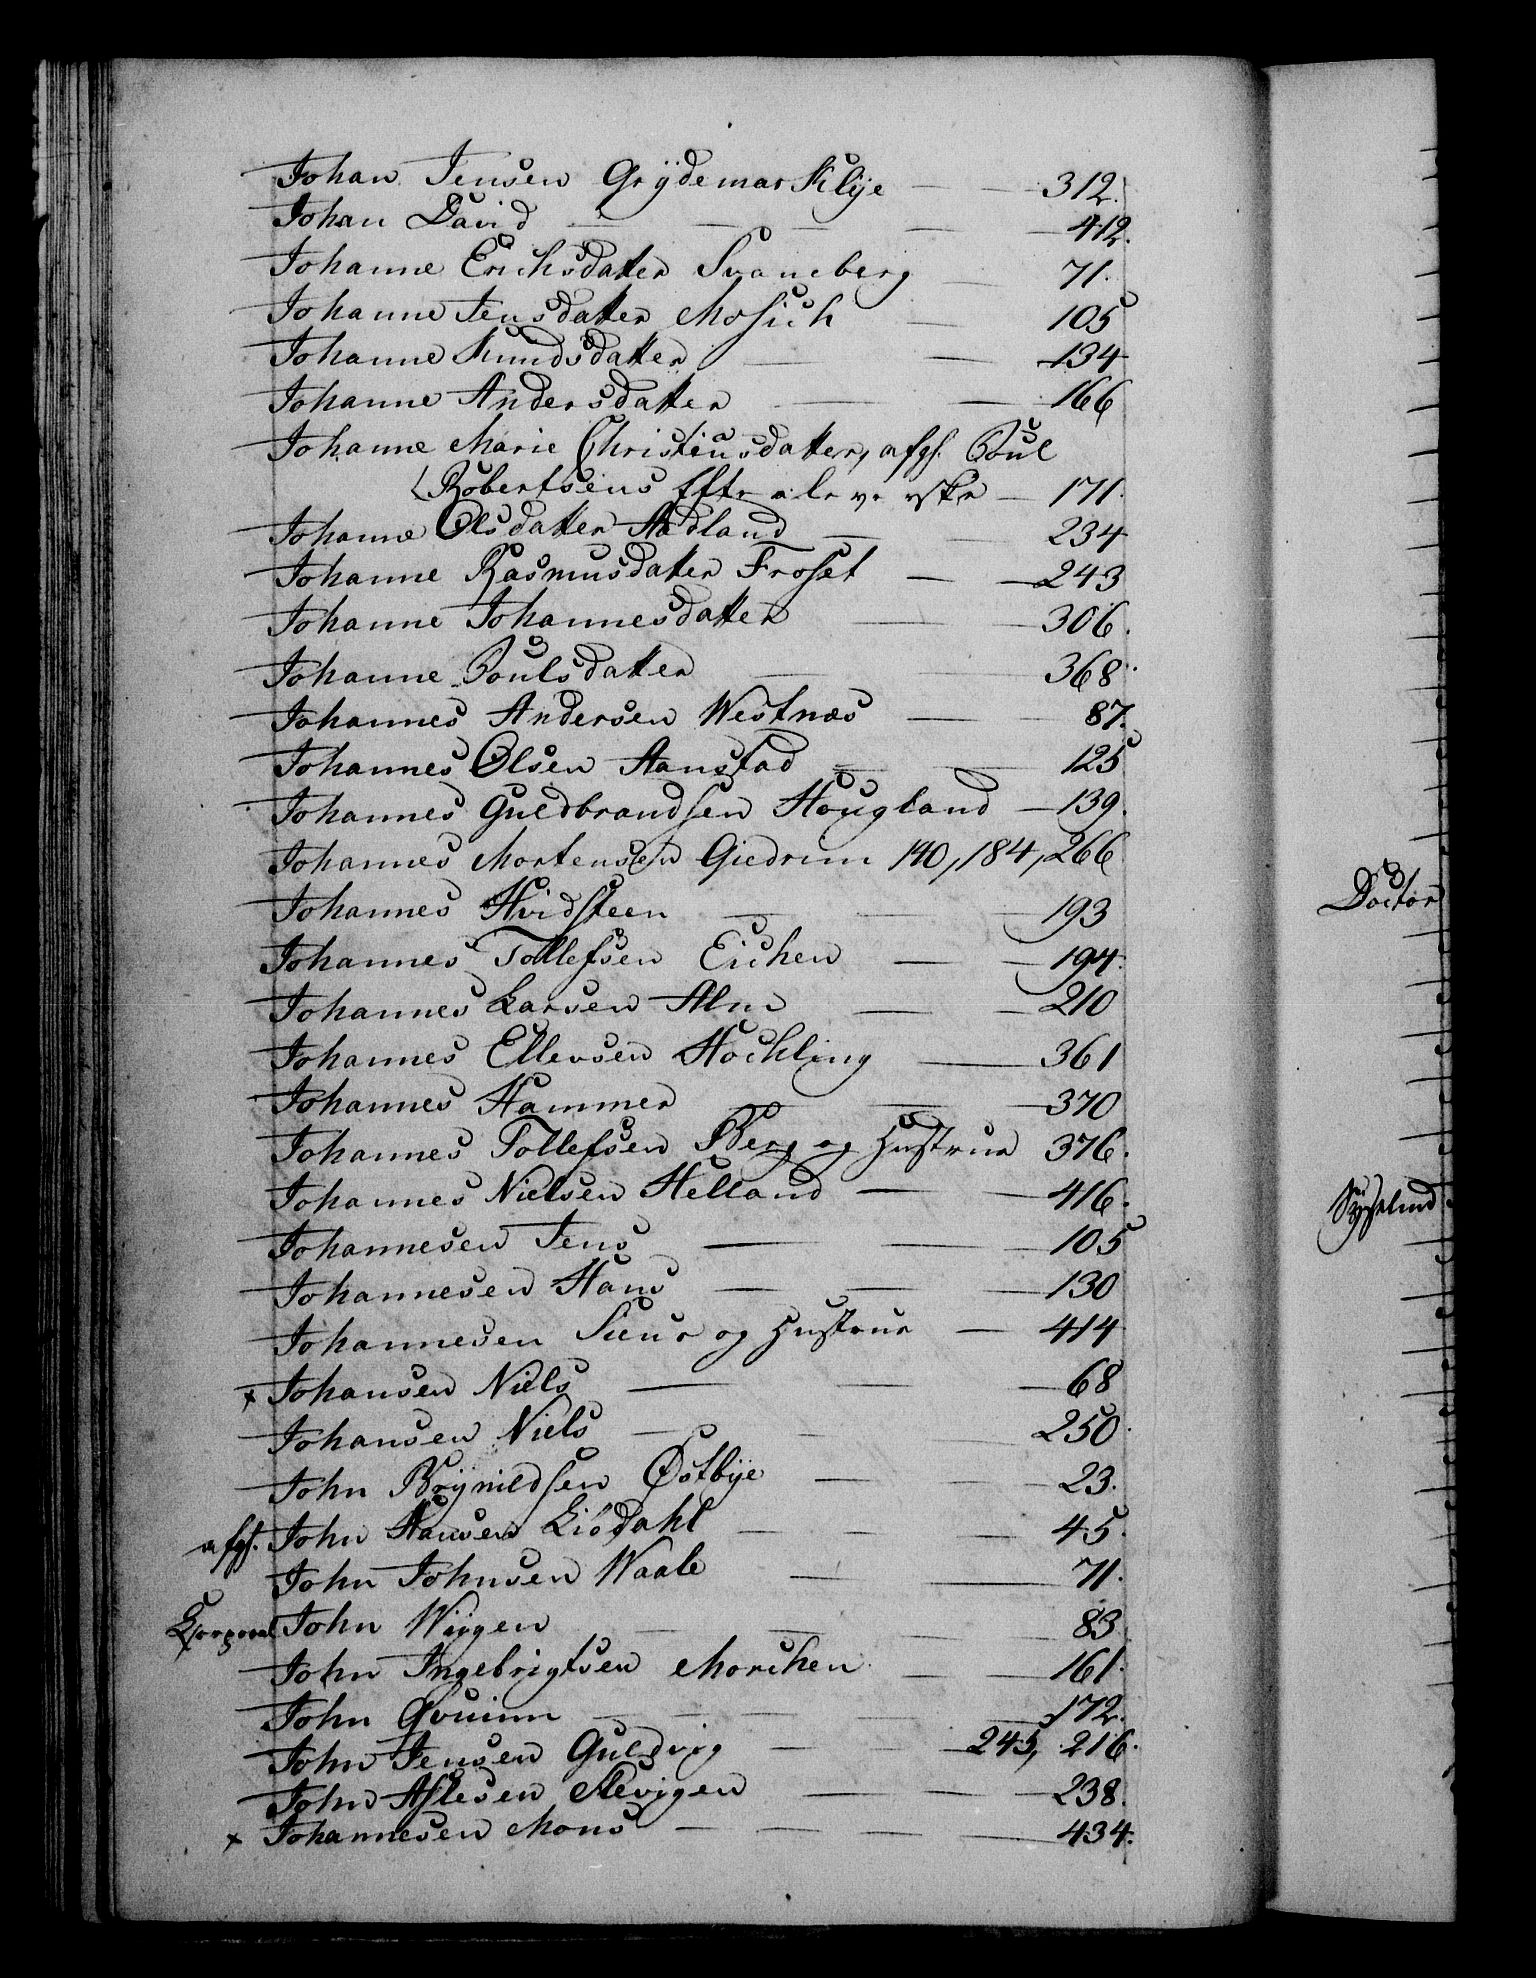 Johan Jensen Grÿdemarsklÿe — — 312.
Johan David — — — — — 412.
Johanne Erichsdatter Svaneberg — 71.
Johanne Jensdatter Mosich — 105
Johanne Knudsdatter — — 134
Johanne Andersdatter — — 166
Johanne Marie Christensdatter, afg. Poul
Robertsens Efterleverske — 171.
Johanne Olsdatter Aadland — — 234
Johanne Rasmusdatter Froset — — 243
Johanne Johannesdatter — — 306.
Johanne Poulsdatter — — 368.
Johannes Andersen Westnæs — — 87.
Johannes Olsen Aanstad — — 125
Johannes Guldbrandsen Hougland — 139.
Johannes Mortensen Giedrim 140, 184, 266
Johannes Hvidsteen — — — 193
Johannes Tollefsen Eichen — — 194.
Johannes Larsen Alm — — 210
Johannes Ellevsen Hochling — 361
Johannes Hammer — — — 370
Johannes Tollefsen Berg og Hustrue 376.
Johannes Nielsen Helland — — 416.
Johannesen Jens — — — 105
Johannesen Hans — — — 130
Johannesen Siur og Hustrue — 414
x Johansen Niels — — — 68
Johansen Niels — — — 250.
John Brÿnildsen Østbÿe — — 23.
afg. John Hansen Liødahl — — — 45.
John Johnsen Waale — — 71.
Corporal John Wiigen — — — 83.
John Ingebrigtsen Morchen — — 161.
John Qvinn — — — — 172.
John Jensen Guldvig — — 245, 216.
John Aslesen Klevigen — — — 238.
x Johannesen Mons — — — — 434.
Doctor